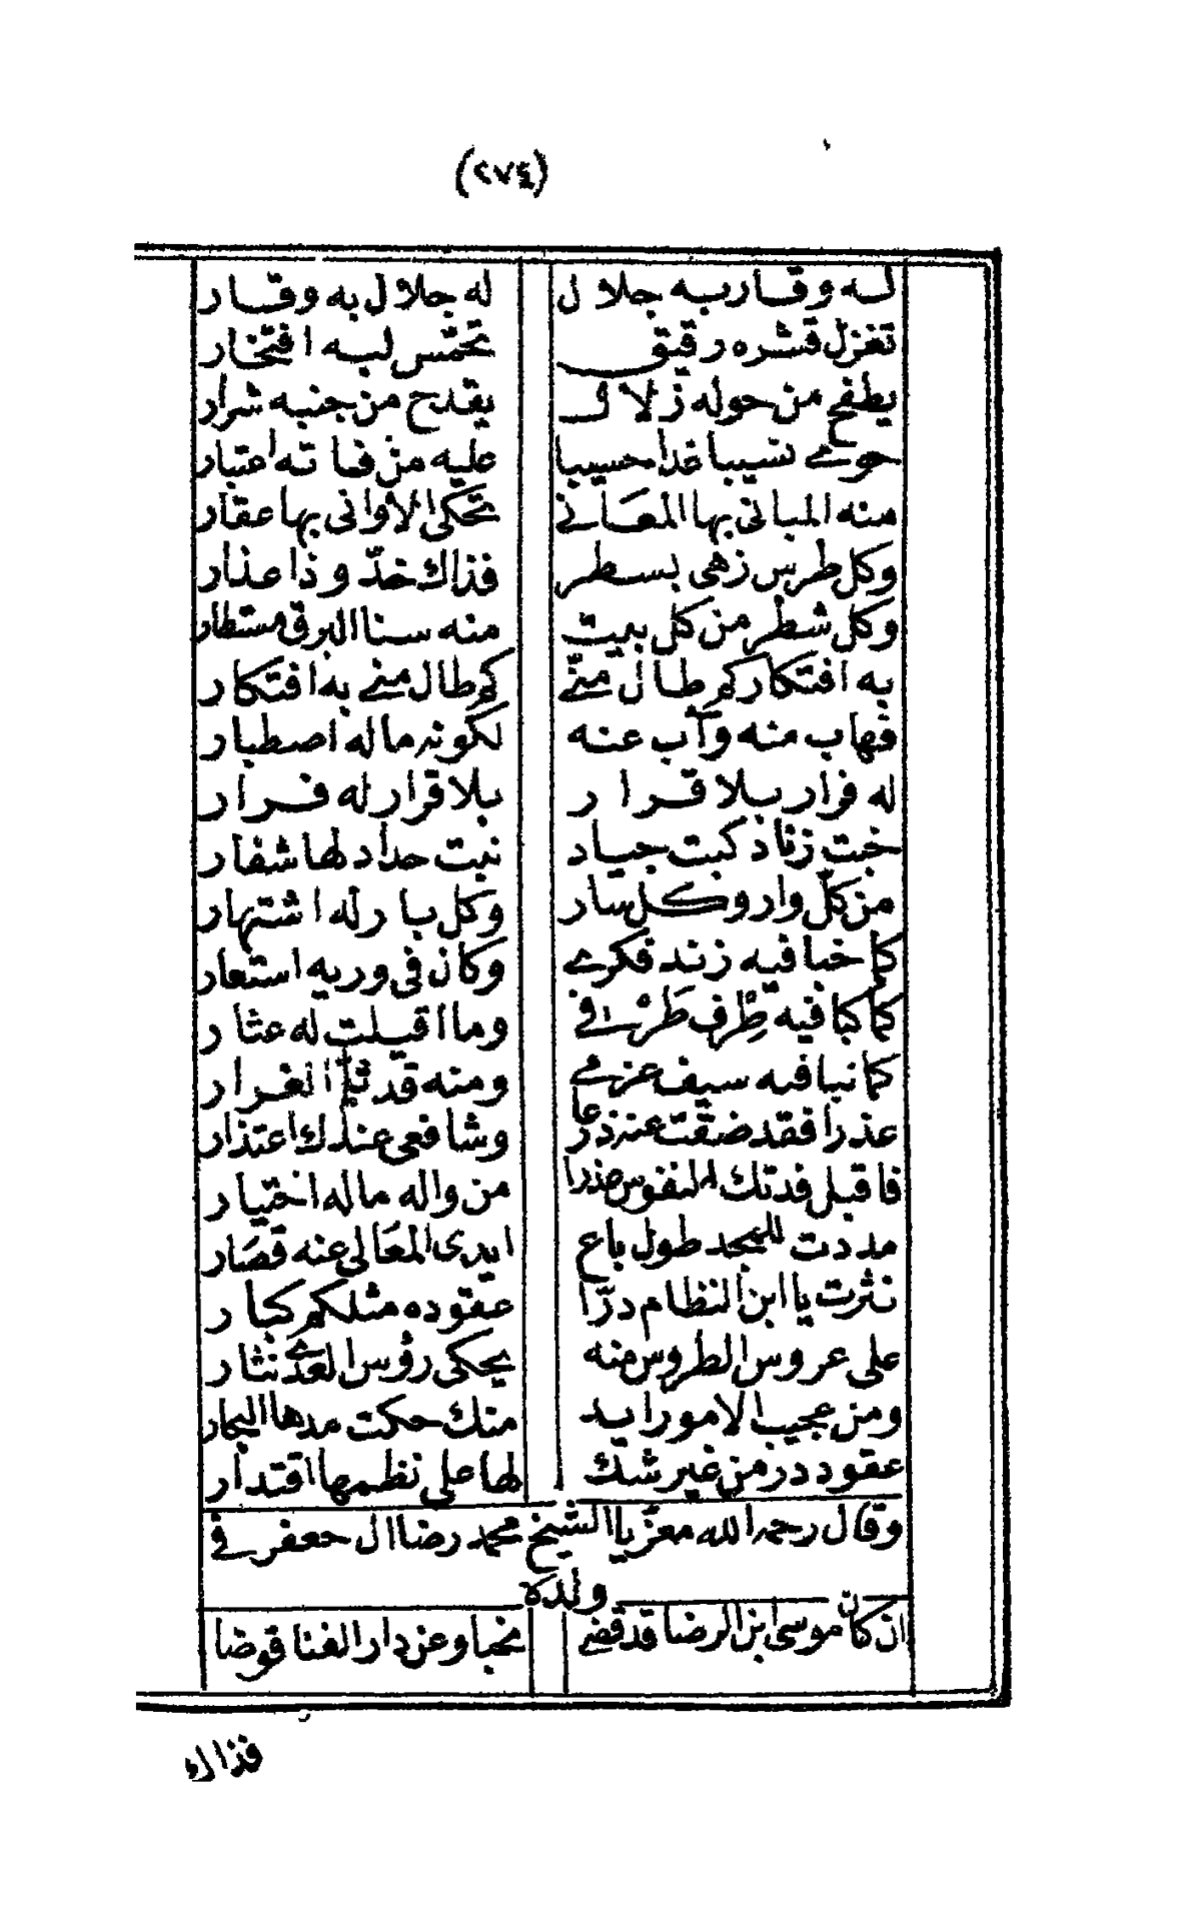 (٢٧٤)
له وقار به جلال له جلال به وقار
تغزل قشره رقيق تحمّس لبه افتخار
يطفح من حوله زلال يقدح من جنبه شرار
حوى نسيبا غدا حسيبا عليه من فاته اعتبار
منه المبانى بها المعانى تحكى الاوانى بها عقار
وكل طرس زهى بسطر فذاك خدّ وذا عذار
وكل شطر من كل بيت منه سنا البرق مستطار
به افتكار كم طال منّى كم طال منى به افتكار
فهاب منه وآب عنه لكونه ماله اصطبار
له فرار بلا قرار بلا قرار له فرار
خبت زناد كبت جياد نبت حداد لها شفار
من كلّ وار وكل سار وكل بار له اشتهار
كما خبا فيه زند فكرى وكان فى وريه استعار
كما كبا فيه طِرْف طَرْفى وما اقيلت له عثار
كما نبا فيه سيف عزمى ومنه قد ثلّم الغرار
عذرا فقد ضقت عنه ذرعا وشافعى عندك اعتذار
فاقبل فدتك النفوس عذرا من واله ماله اختيار
مددت للمجد طول باع ايدى المعالى عنه قصار
نثرت يا ابن النظام درّا عقوده مثلكم كبار
على عروس الطروس منه يحكى رؤس العدى نثار
ومن عجيب الامور ايد منك حكت مدها البحار
عقود در من غير شك لها على نظمها اقتدار
وقال رحمه الله معزّيا الشيخ محمد رضا ال جعفر فى
ولده
ان كان موسى ابن الرضا قد قضى نحبا وعن دار الفنا قوضا
فذاك